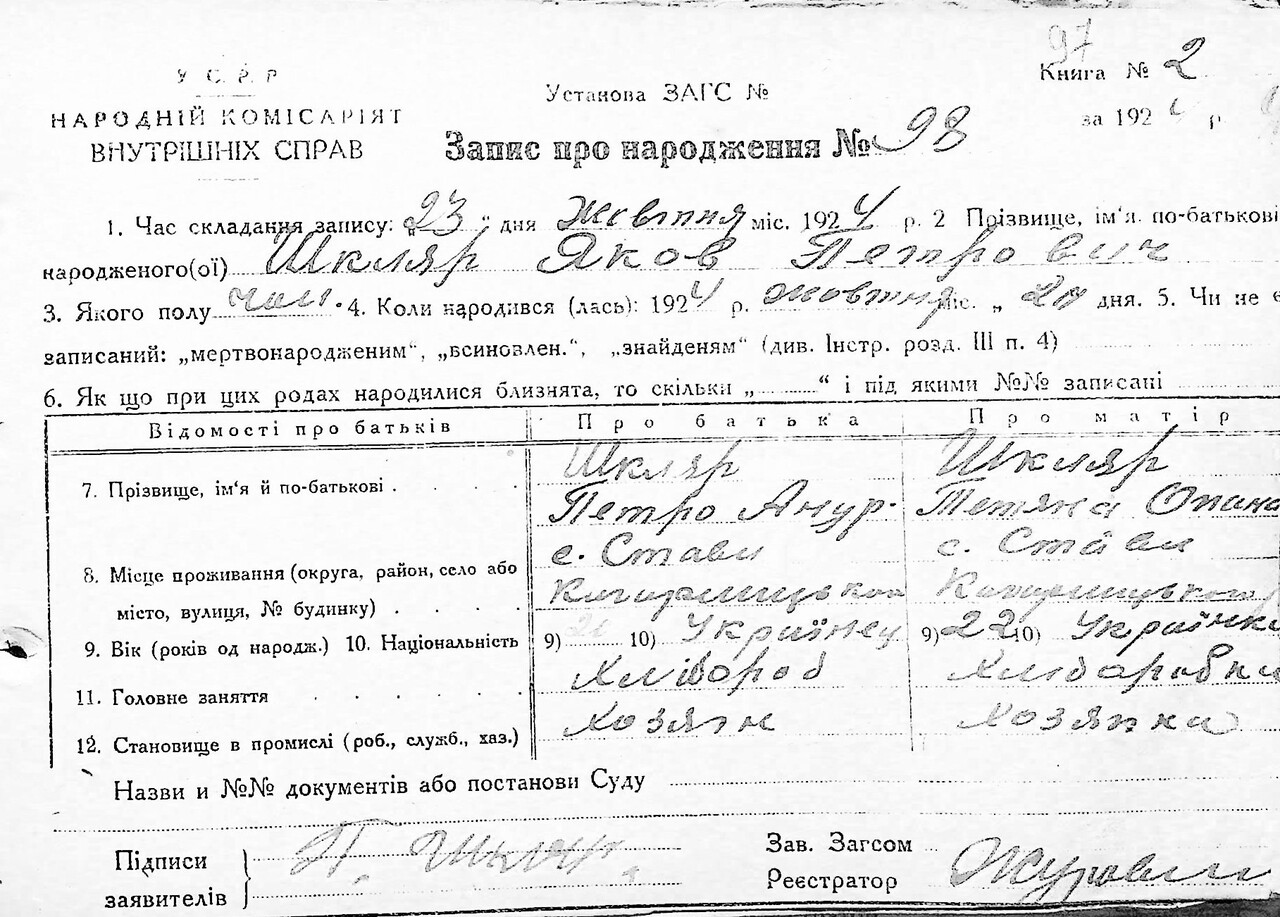 97
У С. Р. Р
НАРОДНІЙ КОМІСАРІЯТ
ВНУТРІШНІХ СПРАВ
Установа ЗАГС №
Книга № 2
за 1924 р
Запис про народження № 98
1. Час складання запису: 23 " дня жовтня міс. 1924 р. 2 Прізвище, ім'я по-батькові
народженого(ої) Шкляр Яков Петрович
3. Якого полу чол. 4. Коли народився (лась): 1924 р. жовтня міс. „ дня. 5. Чи не є
записаний: „мертвонародженим“, „всиновлен.“, „знайденям“ (див. Інстр. розд. III п. 4)
6. Як що при цих родах народилися близнята, то скільки „ “ і під якими №№ записані
Відомості про батьків Про батька Про матір
7. Прізвище, ім'я й по-батькові . . . . Шкляр Шкляр
Петро Тетяна Опана
8. Місце проживання (округа, район, село або с. Стави с. Стави
місто, вулиця, № будинку) . . . .
9. Вік (років од народж.) 10. Національність 9) 10) Українец 9) 22 10) Українка
11. Головне заняття . . . . . Хлібороб Хліборобка
12. Становище в промислі (роб., служб., хаз.) Хозяін Хозяйка
Назви и №№ документів або постанови Суду
Підписи П. Шкляр.
заявителів
Зав. Загсом
Реєстратор